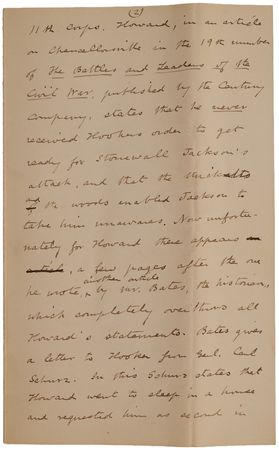 (2)
11th Corps. Howard, in an article
on Chancellorsville in the 19th number
of The Battles and Leaders of the
Civil War, published by the Century
Company, states that he never
received Hookers order to get
ready for Stonewall Jackson's
attack, and that the
of the woods enabled Jackson to
take him unawares. Now unfortu-
nately for Howard there appears
a few pages after the one
another article
he wrote, by Mr. Bates, the historian,
which completely overthrows all
Howard's statements. Bates gives
a letter to Hooker from Genl. Carl
Schurz. In this Schurz states that
Howard went to sleep in a house
and requested him as second in